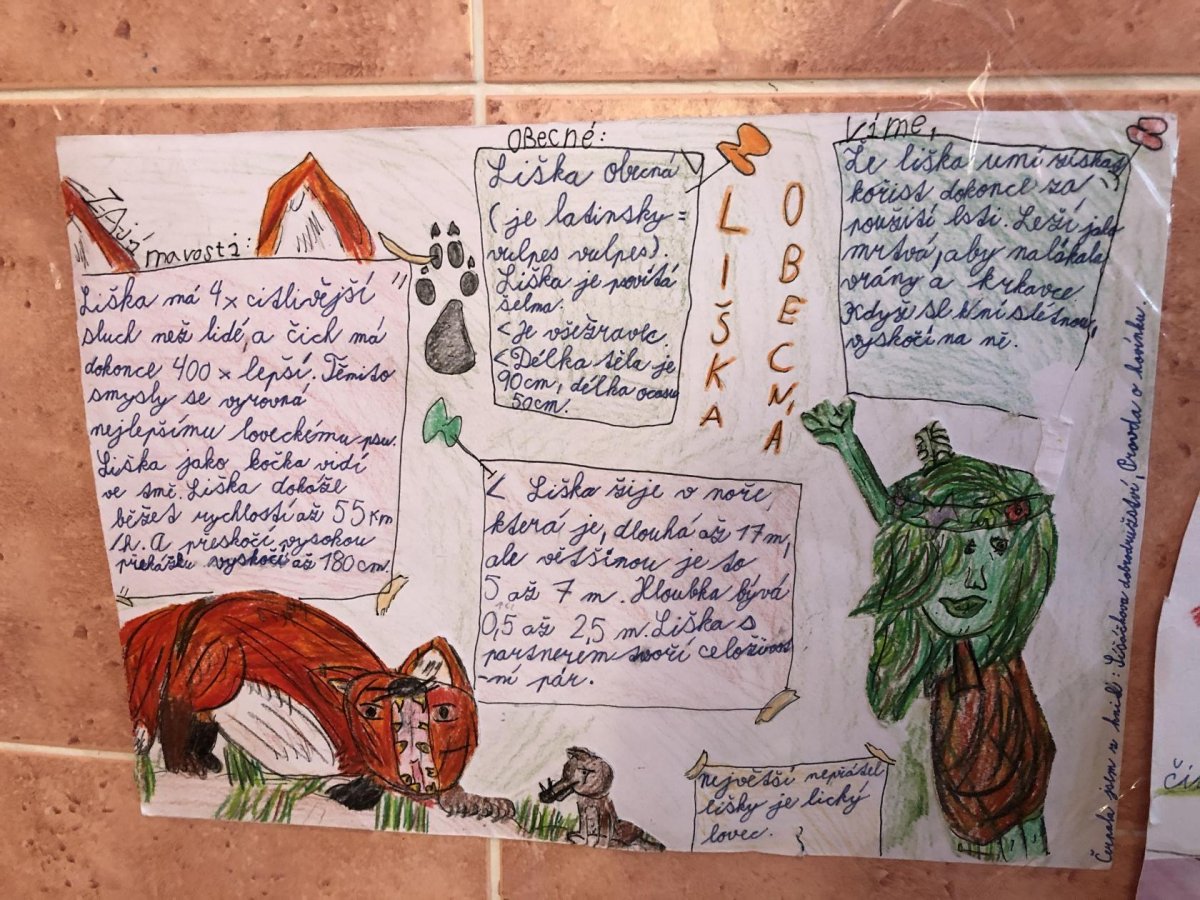 Zajímavosti:
Liška má 4x citlivější
sluch než lidé, a čich má
dokonce 400x lepší. Těmito
smysly se vyrovná
nejlepšímu loveckému psu.
Liška jako kočka vidí
ve tmě. Liška dokáže
běžet rychlostí až 55 km
/h. A přeskočí vysokou
překážku vyskočí až 180 cm.
OBecné:
Liška obecná
(je latinsky =
vulpes vulpes).
Liška je psovitá
šelma.
< Je všežravec.
< Délka těla je
90cm, délka ocasu
50cm.
LIŠKA
OBECNÁ
víme,
Že liška umí získat
kořist dokonce za
použití lsti. Leží jako
mrtvá, aby nalákala
vrány a krkavce
Když se k ní slétnou,
vyskočí na ně.
< Liška žije v noře,
která je, dlouhá až 17 m,
ale většinou je to
5 až 7 m. Hloubka bývá
0,5 až 2,5 m. Liška s
partnerem tvoří celoživot
-ní pár.
největší nepřátel
lišky je lický
lovec.
Čerpala jsem z knih: dobrodružství, Pravda o